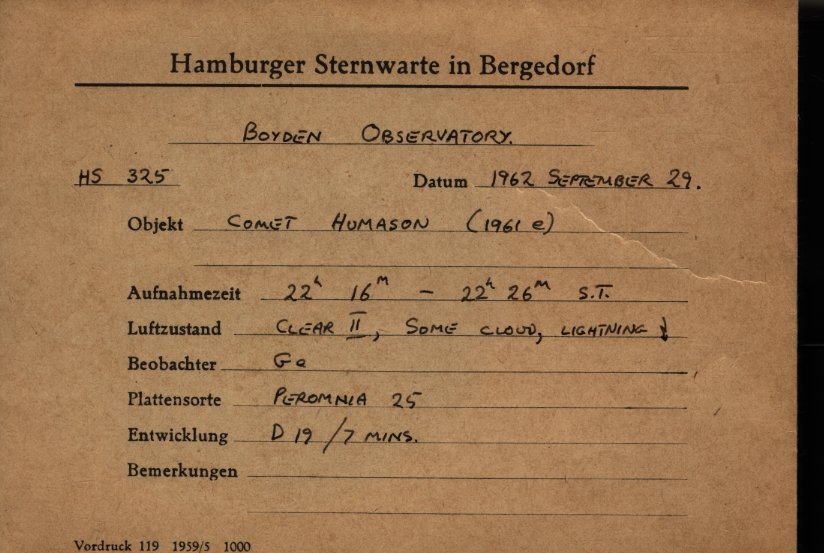 Hamburger Sternwarte in Bergedorf
BOYDEN OBSERVATORY.
HS 325 Datum 1962 SEPTEMBER 29.
Objekt COMET HUMASON (1961 e)
Aufnahmezeit 22ʰ 16ᵐ – 22ʰ 26ᵐ S.T.
Luftzustand CLEAR II, SOME CLOUD, LIGHTNING ↓
Beobachter Ge
Plattensorte PEROMNIA 25
Entwicklung D 19 / 7 MINS.
Bemerkungen
Vordruck 119 1959/5 1000